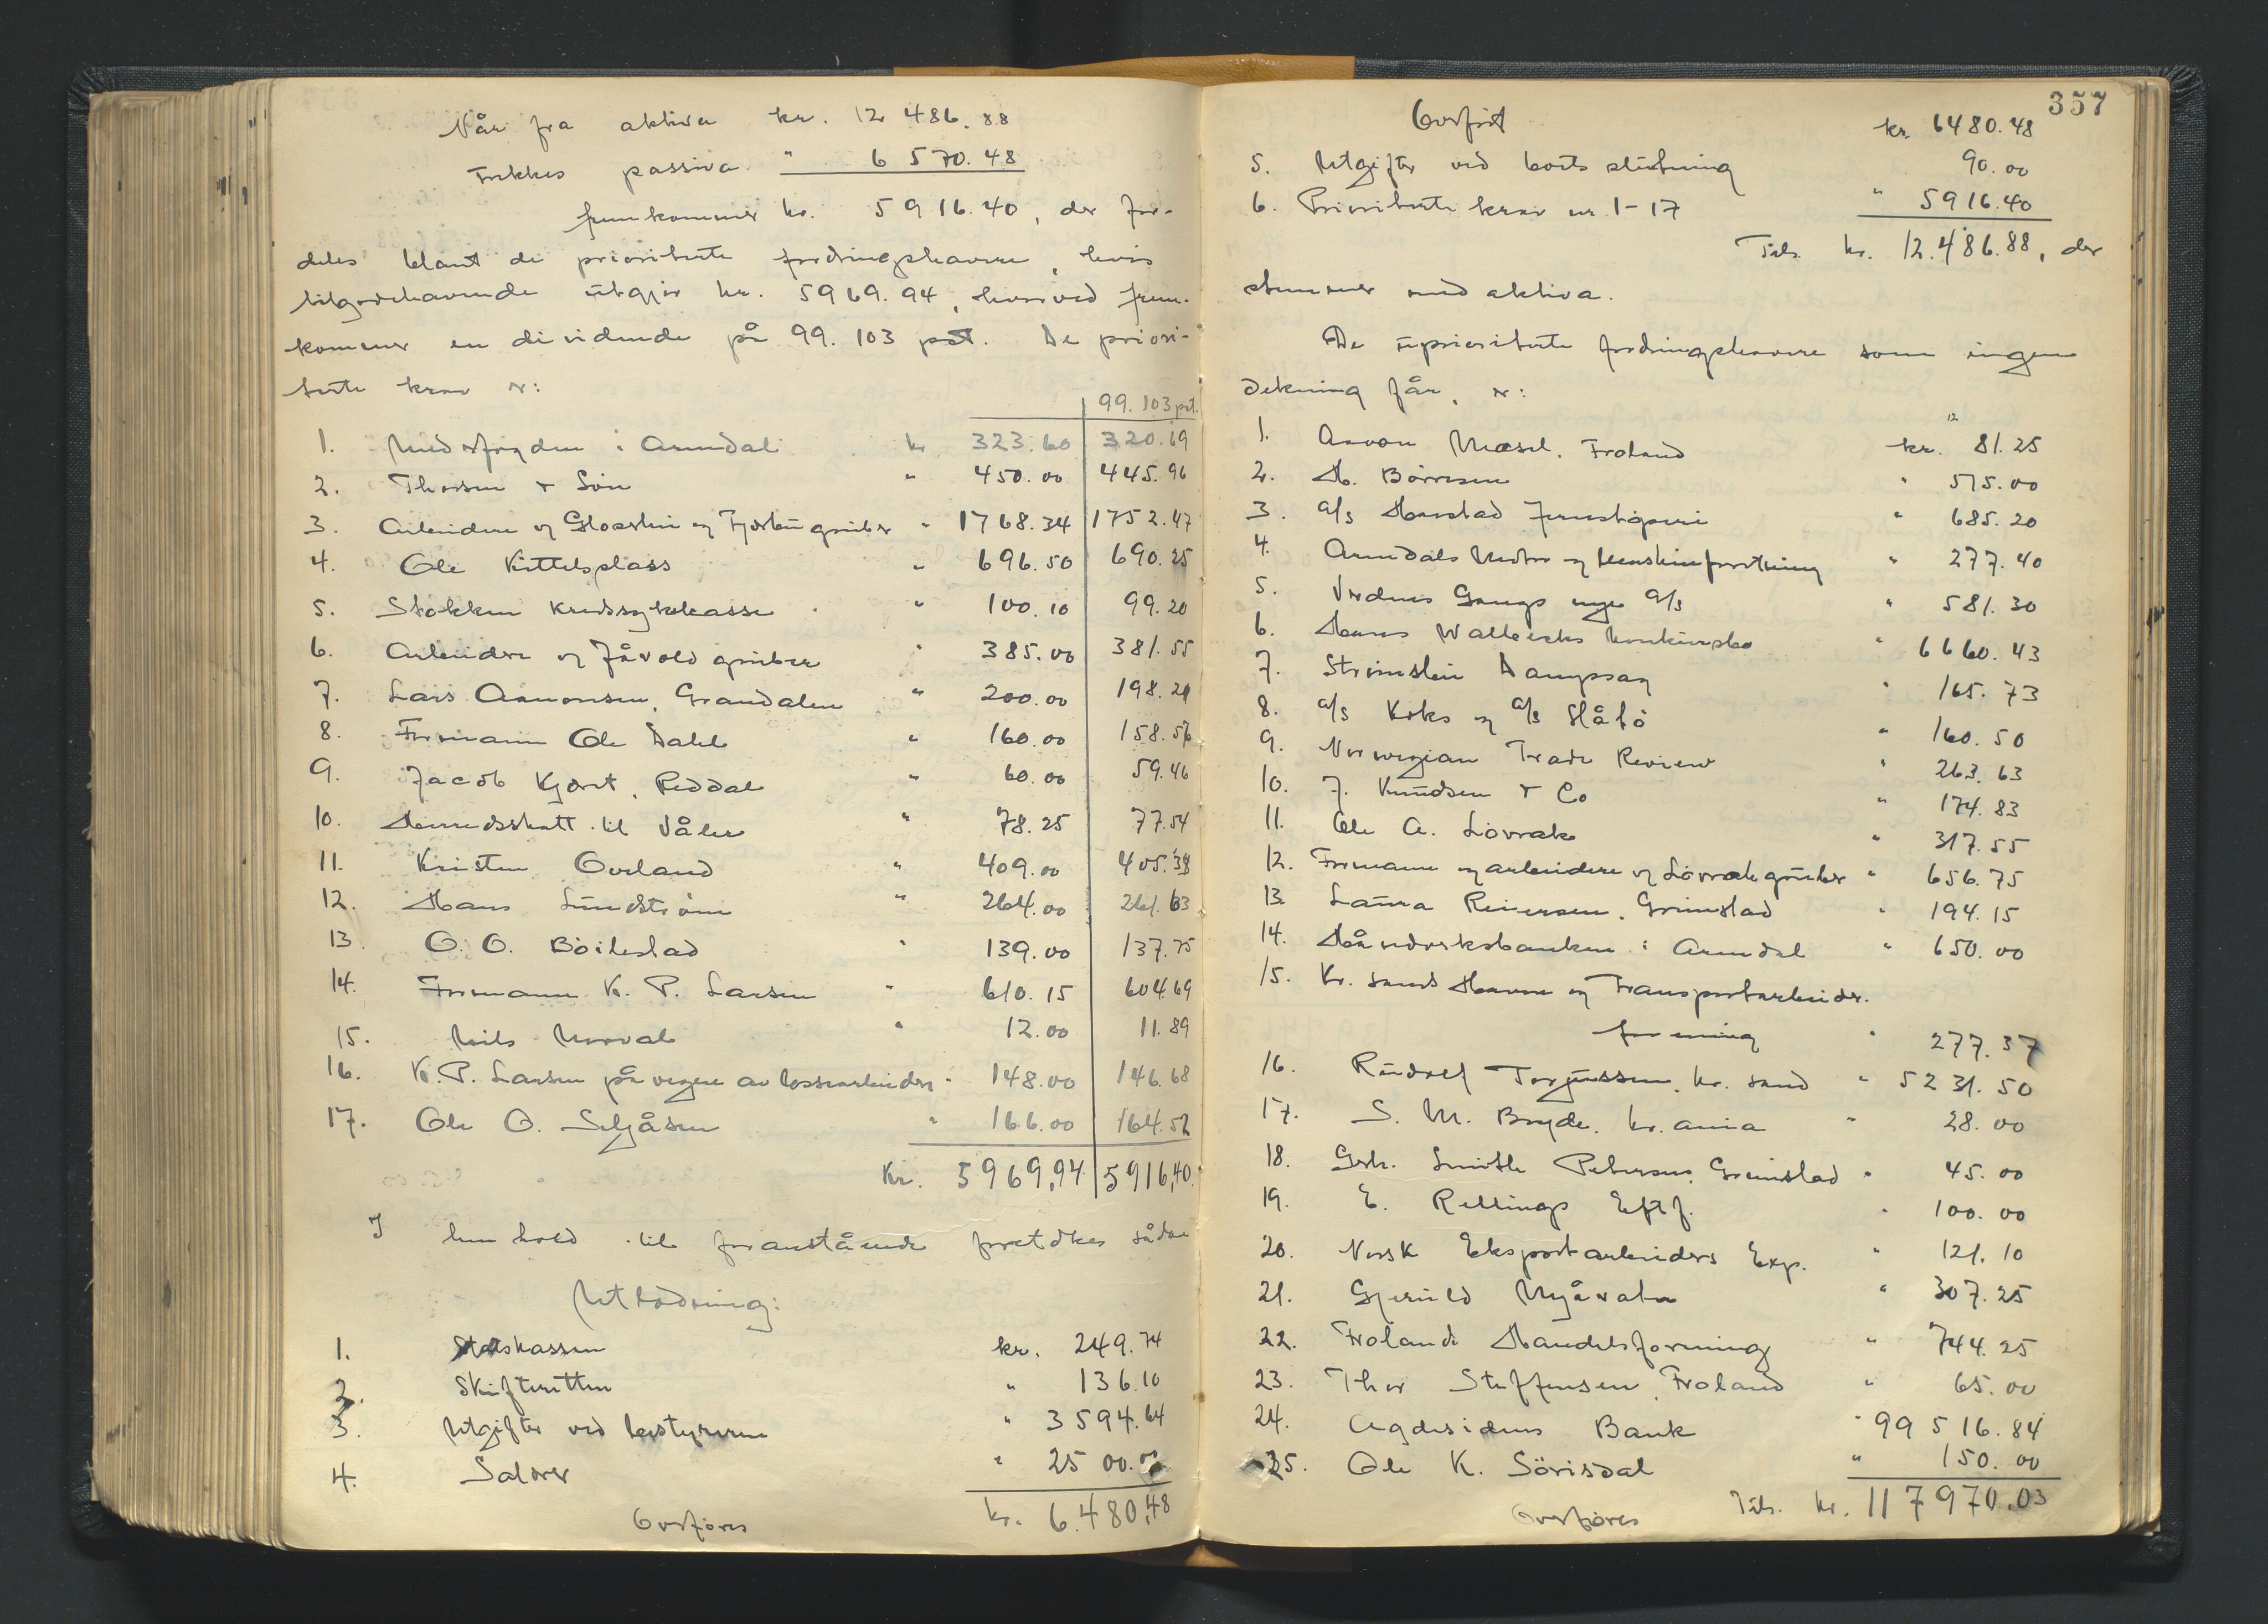 Når fra aktiva kr. 12 486.88
Trekkes passiva " 6 570.48
fremkommer kr. 5916.40, der for-
deles blant de prioriterte fordringshavere, hvis
tilgodehavende utgjør kr. 5969.94, hvorved frem-
kommer en dividende på 99.103 pst. De priori-
terte krav er:
99.103 pst.
1. Underfogden i Arendal kr. 323.60 320.69
2. Thorsen & Søn " 450.00 445.96
3. Arbeidere og Gloserhei og Tjorhei gruber " 1768.34 1752.47
4. Ole Kittelsplass " 696.50 690.25
5. Stokken Kredssykekasse " 100.10 99.20
6. Arbeidere og Jåvold gruber " 385.00 381.55
7. Lars Aamonsen, Grandalen " 200.00 198.21
8. Formann Ole Dahl " 160.00 158.56
9. Jacob Kjørt, Reddal " 60.00 59.46
10. Herredsskatt til Våler " 78.25 77.54
11. Kristen Overland " 409.00 405.33
12. Hans Lundstrøm " 264.00 261.63
13. O. O. Böilestad " 139.00 137.75
14. Formann K. P. Larsen " 610.15 604.69
15. Nils " 12.00 11.89
16. K. P. Larsen på vegne av lossearbeidere " 148.00 146.68
17. Ole O. Seljåsen " 166.00 164.52
Kr. 5969,94 5916,40.
I henhold til foranstående foretokes sådan
Utlodning:
1. Statskassen kr. 249.74
2. Skifteretten " 136.10
3. Utgifter ved bestyreren " 3594.64
4. Salærer " 2500.00
Overføres kr. 6.480,48
357
Overført kr. 6480.48
5. Utgifter ved boets slutning 90.00
6. Prioriterte krav nr. 1-17 " 5916.40
Tils. kr. 12.486.88, der
stemmer med aktiva.
De uprioriterte fordringshavere som ingen
dekning får, er:
1. Aavon Mæsel. Froland kr. 81.25
2. H. Börresen " 575.00
3. A/s Harstad Jernstøperi " 685.20
4. Arendals Motor og Maskinforretning " 277.40
5. Verdens Gangs nye A/s " 581.30
6. Hans Wallevihs konkursbo " 6660.43
7. Strømslei Dampsag " 165.73
8. A/s Koks og A/s Slåtö " 160.50
9. Norwegian Trade Review " 263.63
10. J. Knudsen & Co " 174.83
11. Ole A. Lövrak " 317.55
12. Formann og arbeidere og Lövrak gruber " 656.75
13. Laura Reiersen, Grimstad " 194.15
14. Håndverksbanken i Arendal " 650.00
15. Kr. sands Havne og Transportarbeider-
forening " 277.37
16. Rudolf Torjussen, kr. sand " 5231.50
17. S. M. Bryde, kr. ania " 28.00
18. Gebr. Smith Petersen, Grimstad " 45.00
19. E. Rellings Eftf. " 100.00
20. Norsk Eksportarbeiders Exp. " 121.10
21. Gjeruld Myåvatn " 307.25
22. Frolands Handelsforening " 744.25
23. Thor Steffensen, Froland " 65.00
24. Agdesidens Bank " 99516.84
25. Ole K. Sörisdal " 150.00
Overføres Tils. kr. 117970.03